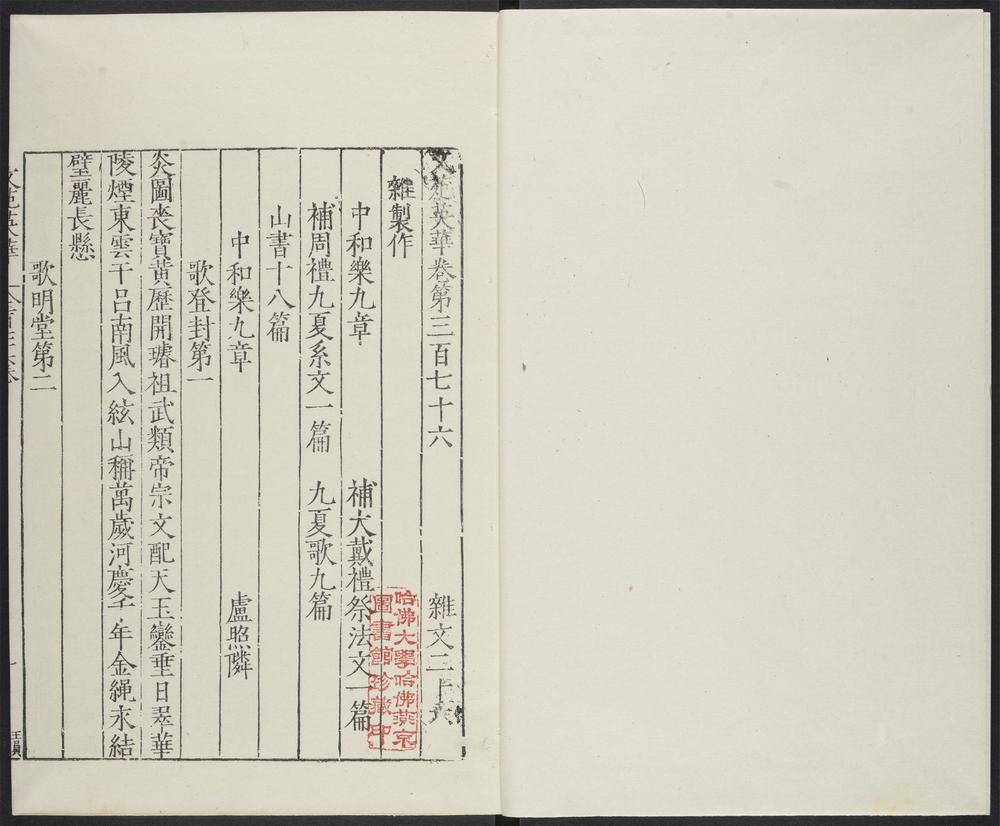 文苑英華卷第三百七十六 雜文二十六
雜製作
中和樂九章 補大戴禮祭法文一篇
補周禮九夏系文一篇 九夏歌九篇
山書十八篇
中和樂九章 盧照隣
歌登封第一
炎圖喪寶黄歷開璿祖武類帝宗文配天玉鑾垂日翠華
陵煙東雲干呂南風入絃山稱萬歲河慶千年金繩永結
璧麗長懸
歌明堂第二
文苑英華
哈佛大學哈佛燕京
圖書館珍藏印